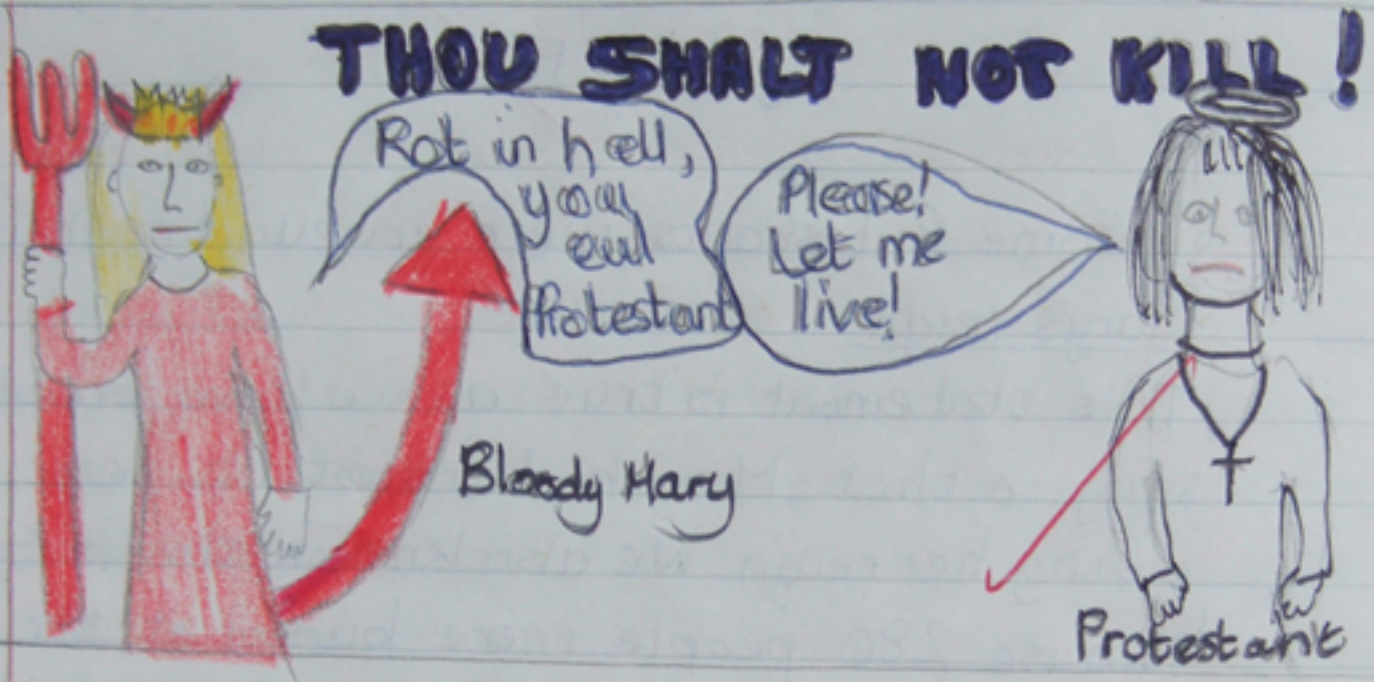 THOU SHALT NOT KILL!
Rot in hell,
you
evil
Protestant
Please!
Let me
live!
Bloody Mary
Protestant